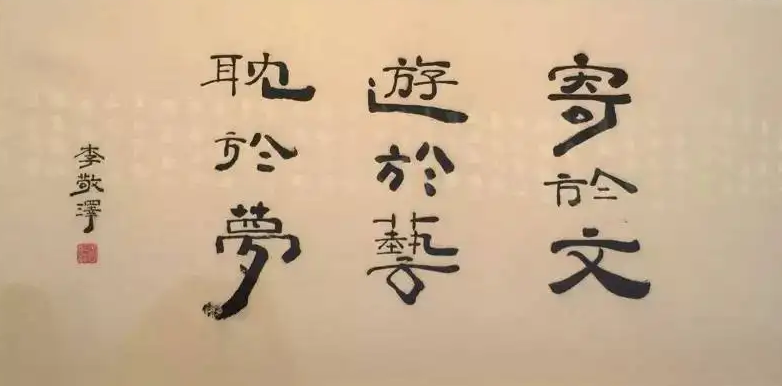 寄於文
遊於藝
耽於夢
李敬澤